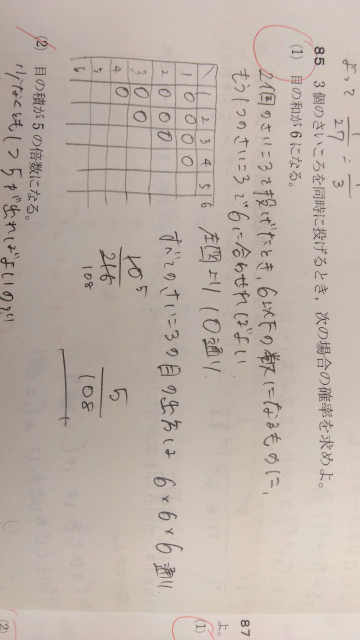 よって 1/27 ÷ 1/3
85 3個のさいころを同時に投げるとき，次の場合の確率を求めよ。
(1) 目の和が6になる。
2個のさいころを投げたとき，6以下の数になるものに，
もう1つのさいころで6に合わせればよい
左図より10通り
1 2 3 4 5 6
1 0 0 0 0
2 0 0 0
3 0 0
4 0
5
6
すべてのさいころの目の出方は 6×6×6 通り
10 5
216
108
5
108
(2) 目の積が5の倍数になる。
少なくとも1つ5が出ればよいので
87
(1)
(2)